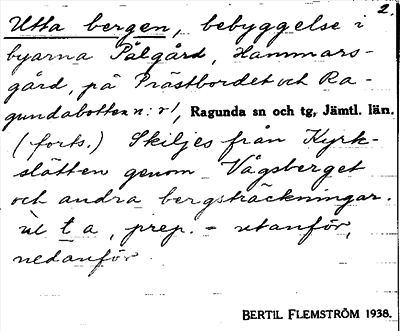 2.
Utta bergen, bebyggelse i
byarna Pålgård, Hammars-
gård, på Prästbordet och Ra-
gundabotten n:r 1, Ragunda sn och tg, Jämtl. län.
(forts.) Skiljes från Kyrk-
slätten genom Vågsberget
och andra bergsträckningar.
ùt t a, prep. - utanför,
nedanför.
BERTIL FLEMSTRÖM 1938.